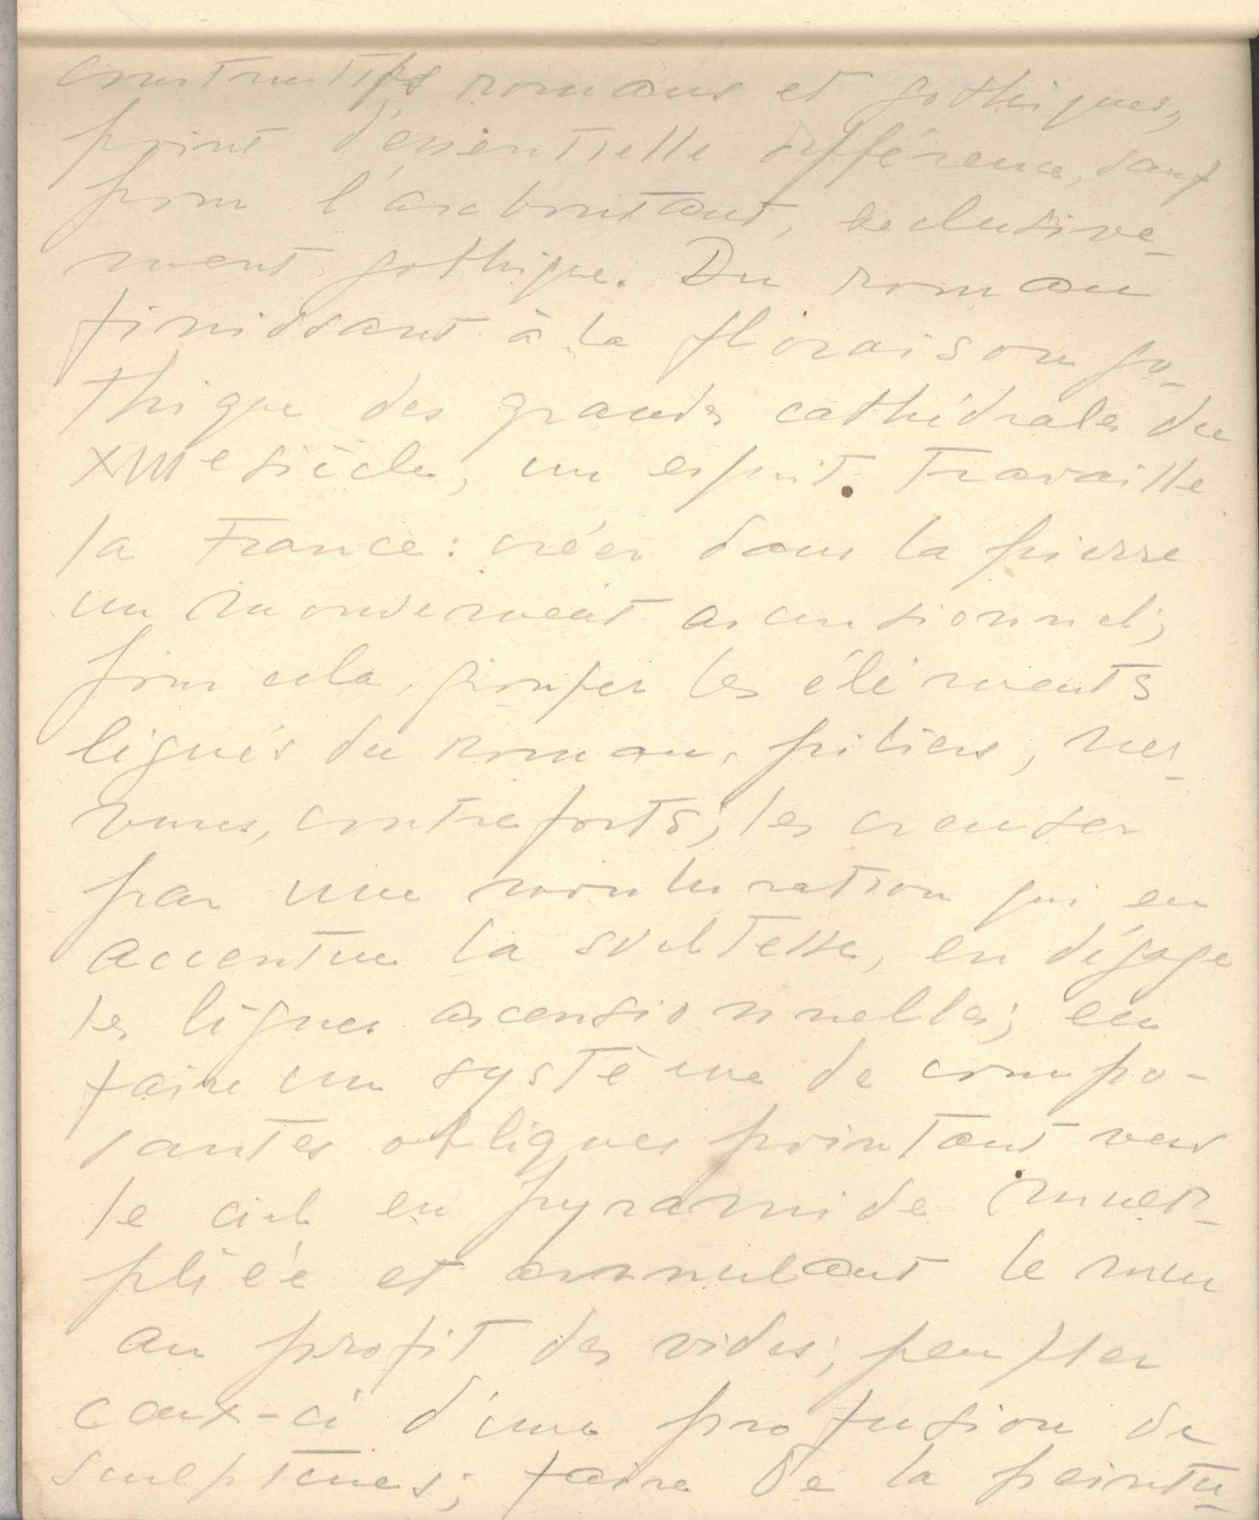 constructifs romans et gothiques,
point d'essentielle différence, sauf
pour l'arc boutant, exclusive-
ment gothique. Du roman
finissant à la floraison go-
thique des grandes cathédrales du
XIIIe siècle, un esprit travaille
la France : créer dans la pierre
un mouvement ascensionnel ;
pour cela, grouper les éléments
ligués du roman, piliers, ner-
vures, contreforts ; les creuser
par une mouluration qui en
accentue la sveltesse, en dégage
les lignes ascensionnelles ; en
faire un système de compo-
santes obliques pointant vers
le ciel en pyramide
et annulant le mur
au profit des vides ; peupler
ceux-ci d'une profusion de
sculptures ; faire de la peintu-